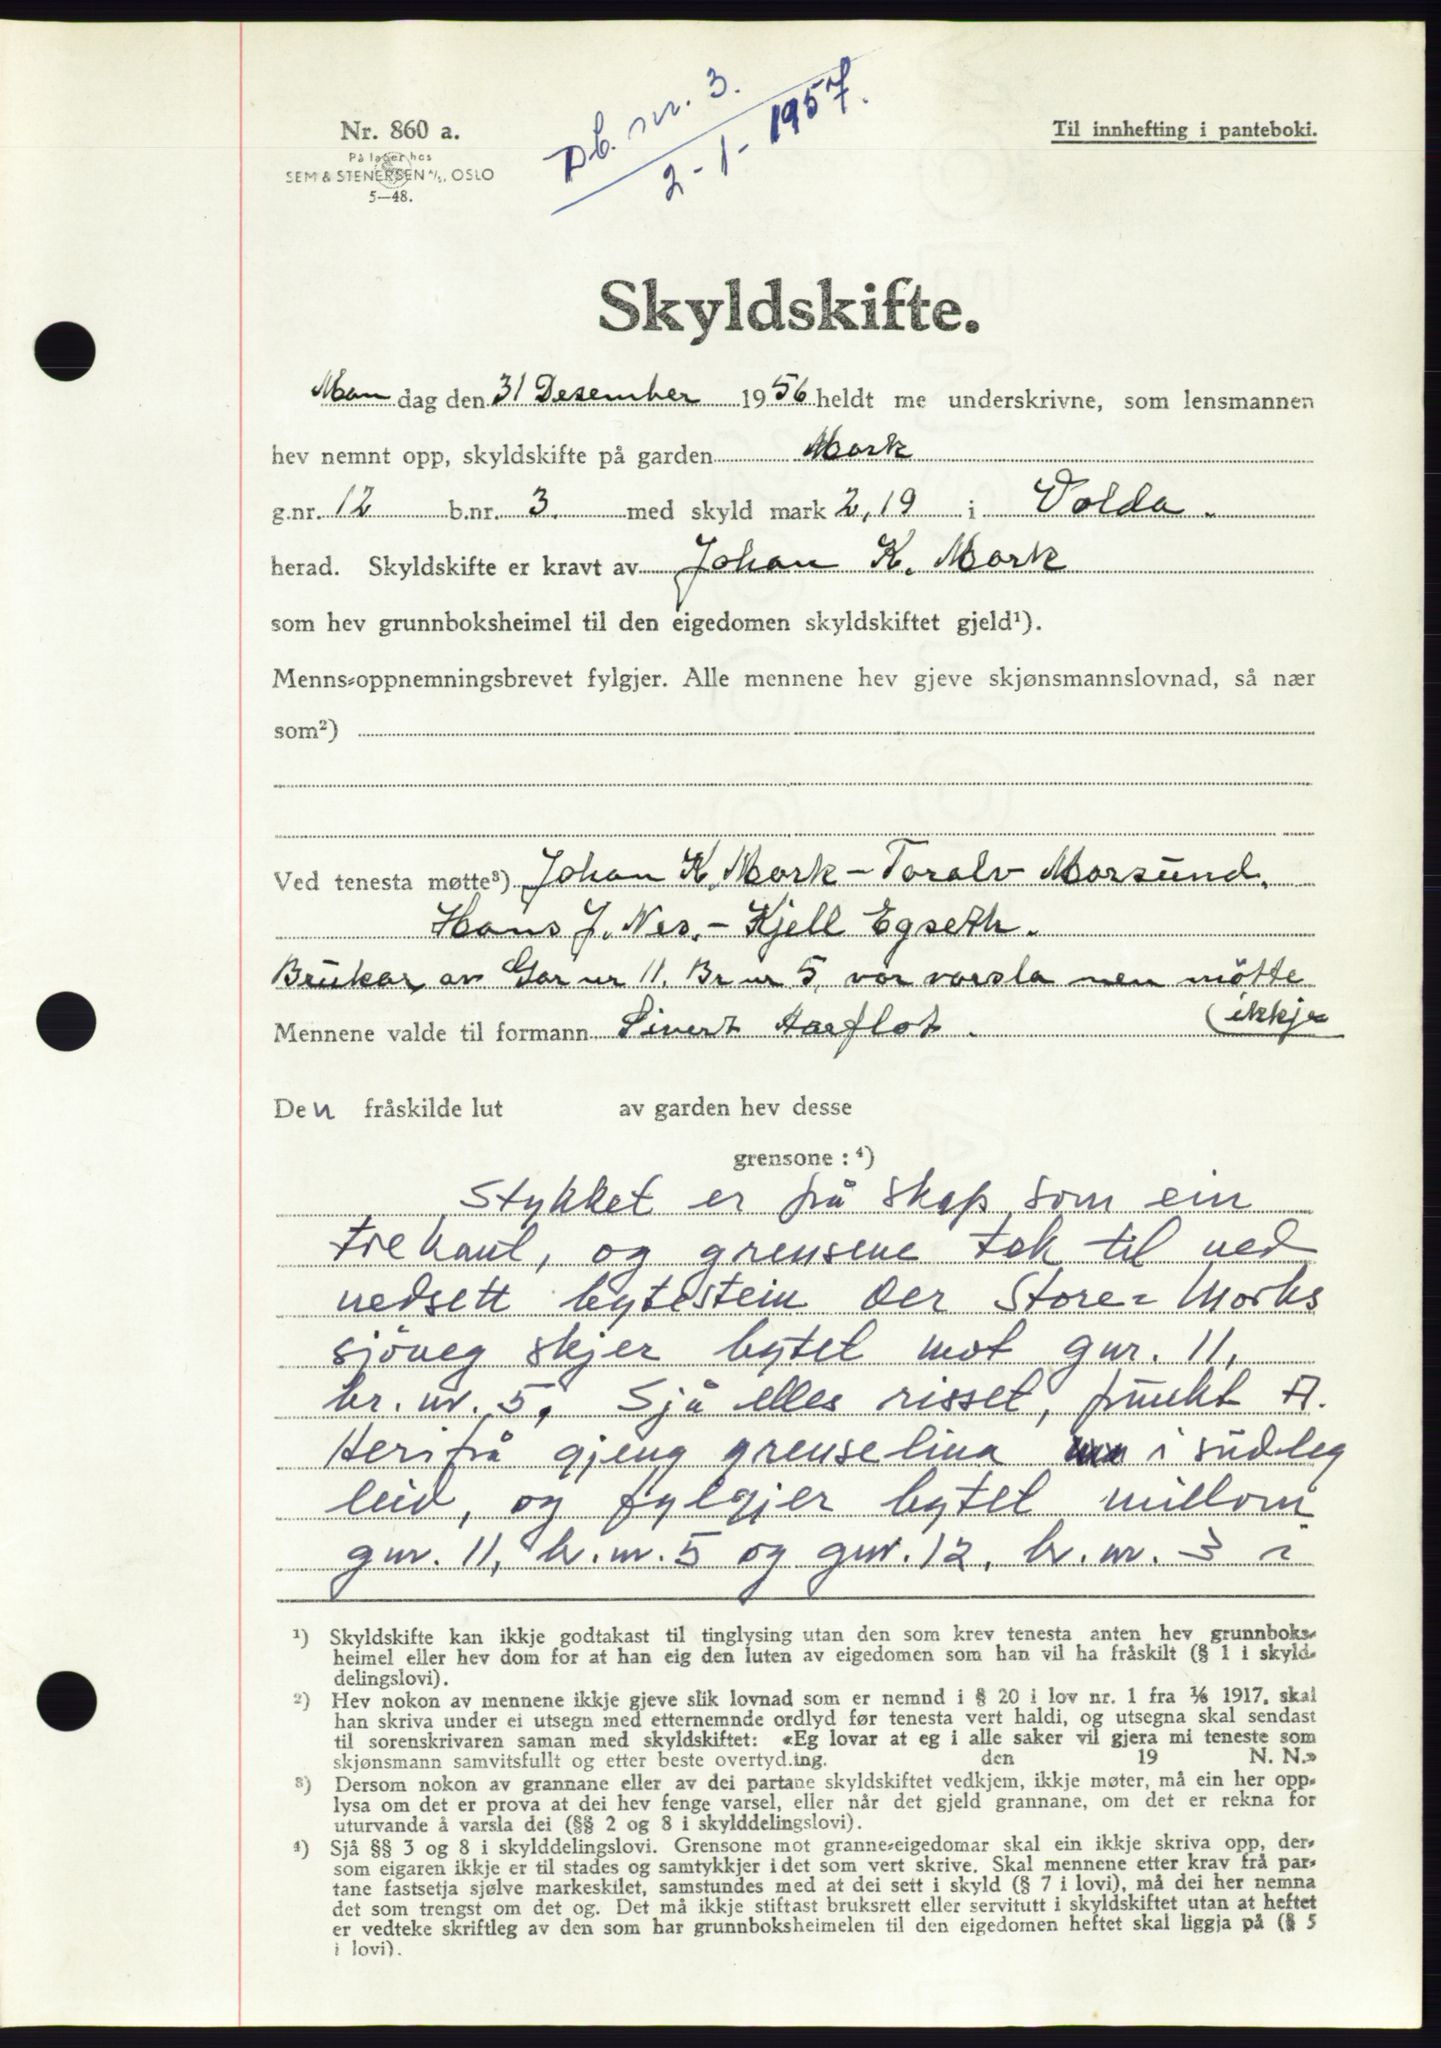 Nr. 860 a.
På lager hos
SEM & STENERSEN A/S, OSLO
5—48.
Db. nr. 3.
2-1-1957.
Til innhefting i panteboki.
Skyldskifte.
Mandag den 31 Desember 1956 heldt me underskrivne, som lensmannen
hev nemnt opp, skyldskifte på garden Mork
g.nr. 12 b.nr. 3. med skyld mark 2,19 i Volda.
herad. Skyldskifte er kravt av Johan K. Mork
som hev grunnboksheimel til den eigedomen skyldskiftet gjeld¹).
Menns-oppnemningsbrevet fylgjer. Alle mennene hev gjeve skjønsmannslovnad, så nær
som²)
Ved tenesta møtte³) Johan K. Mork – Toralv Morsund.
Hans J. Nes. – Kjell Egseth.
Brukar av Gar nr 11. Br nr 5, var varsla men mötte
ikkje
Mennene valde til formann Sivert Aarflot.
Den fråskilde lut av garden hev desse
grensone : ⁴)
Stykket er på skap som ein
trekant, og grensene tek til ved
nedsett bytestein der Store-Morks
sjöveg skjer bytet mot gnr. 11,
br. nr. 5. Sjå elles risset, punkt A.
Herifrå gjeng grenselina i südleg
leid, og fylgjer bytet millom
gnr. 11, br. nr. 5 og gnr. 12, br. nr. 3 i
¹) Skyldskifte kan ikkje godtakast til tinglysing utan den som krev tenesta anten hev grunnboks-
heimel eller hev dom for at han eig den luten av eigedomen som han vil ha fråskilt (§ 1 i skyld-
delingslovi).
²) Hev nokon av mennene ikkje gjeve slik lovnad som er nemnd i § 20 i lov nr. 1 fra 1/6 1917, skal
han skriva under ei utsegn med etternemnde ordlyd før tenesta vert haldi, og utsegna skal sendast
til sorenskrivaren saman med skyldskiftet: «Eg lovar at eg i alle saker vil gjera mi teneste som
skjønsmann samvitsfullt og etter beste overtyding. den 19 N. N.»
³) Dersom nokon av grannane eller av dei partane skyldskiftet vedkjem, ikkje møter, må ein her opp-
lysa om det er prova at dei hev fenge varsel, eller når det gjeld grannane, om det er rekna for
uturvande å varsla dei (§§ 2 og 8 i skylddelingslovi).
⁴) Sjå §§ 3 og 8 i skylddelingslovi. Grensone mot granne-eigedomar skal ein ikkje skriva opp, der-
som eigaren ikkje er til stades og samtykkjer i det som vert skrive. Skal mennene etter krav frå par-
tane fastsetja sjølve markeskilet, samstundes med at dei sett i skyld (§ 7 i lovi), må dei her nemna
det som trengst om det og. Det må ikkje stiftast bruksrett eller servitutt i skyldskiftet utan at heftet
er vedteke skriftleg av den som har grunnboksheimelen til den eigedomen heftet skal liggja på (§ 5
i lovi).